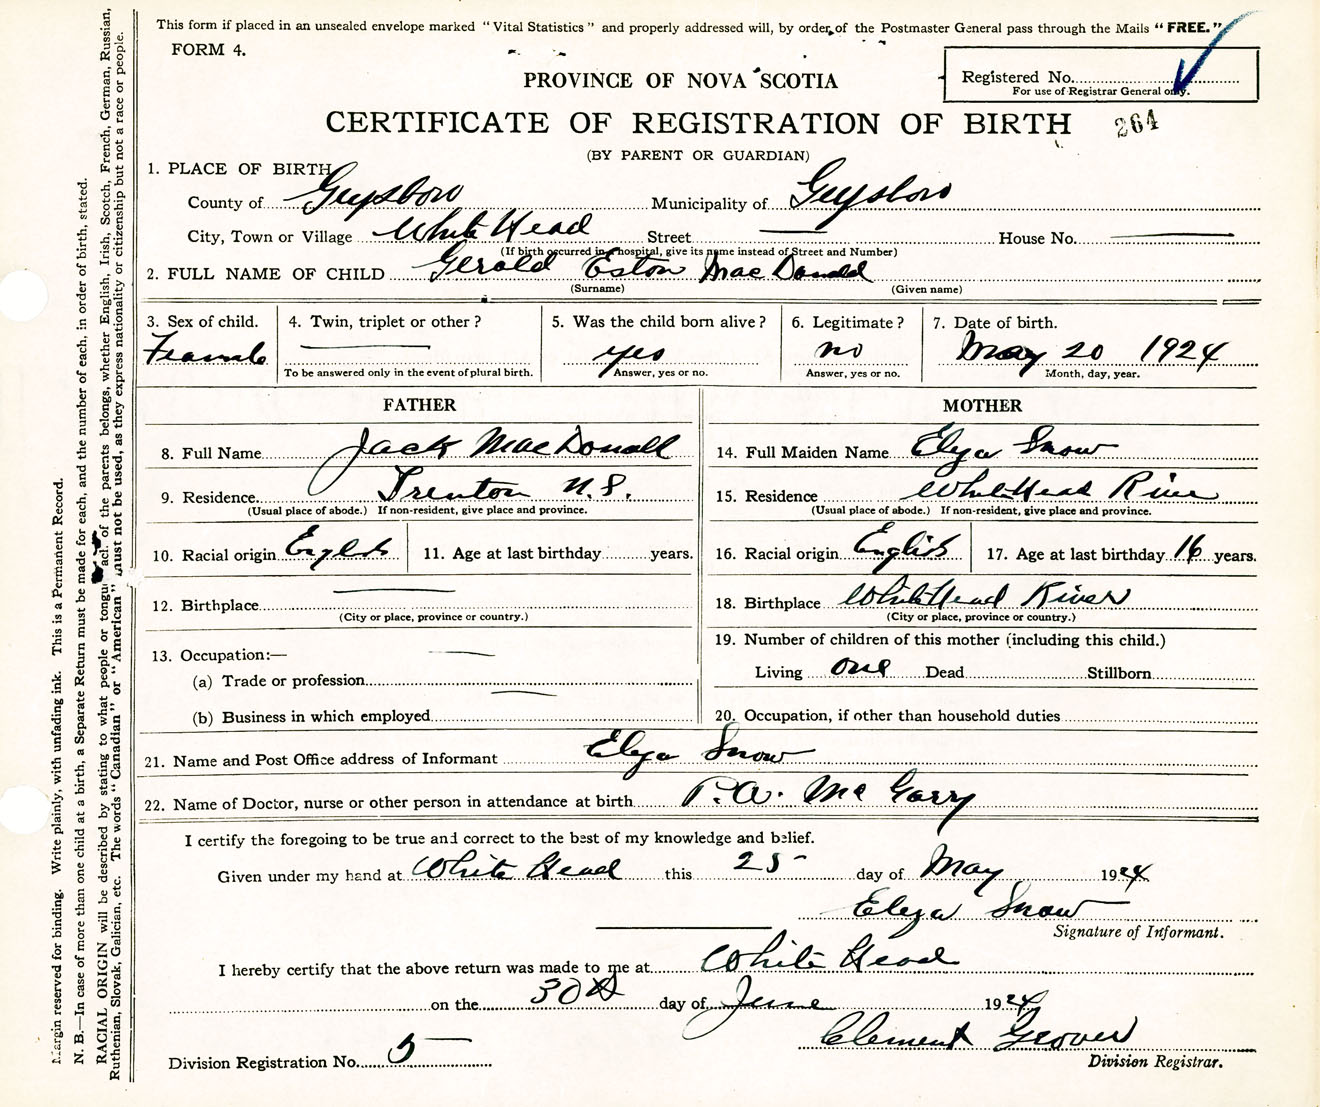 This form if placed in an unsealed envelope marked "Vital Statistics" and properly addressed will, by order of the Postmaster General pass through the Mails "FREE."
FORM 4.
PROVINCE OF NOVA SCOTIA
Registered No.
For use of Registrar General only.
CERTIFICATE OF REGISTRATION OF BIRTH
264
(BY PARENT OR GUARDIAN)
1. PLACE OF BIRTH
County of Guysboro Municipality of Guysboro
City, Town or Village White Head Street — House No. —
(If birth occurred in hospital, give its name instead of Street and Number)
2. FULL NAME OF CHILD Gerald Eston MacDonald
(Surname) (Given name)
3. Sex of child. 4. Twin, triplet or other? 5. Was the child born alive? 6. Legitimate? 7. Date of birth.
— yes no May 20 1924
To be answered only in the event of plural birth. Answer, yes or no. Answer, yes or no. Month, day, year.
FATHER MOTHER
8. Full Name Jack MacDonald 14. Full Maiden Name Elya Snow
9. Residence. Trenton N.S. 15. Residence White Head River
(Usual place of abode.) If non-resident, give place and province. (Usual place of abode.) If non-resident, give place and province.
10. Racial origin English 11. Age at last birthday years. 16. Racial origin English 17. Age at last birthday 16 years.
12. Birthplace — 18. Birthplace White Head River
(City or place, province or country.) (City or place, province or country.)
19. Number of children of this mother (including this child.)
13. Occupation:— —
Living one Dead Stillborn
(a) Trade or profession
(b) Business in which employed — 20. Occupation, if other than household duties
21. Name and Post Office address of Informant Elya Snow
22. Name of Doctor, nurse or other person in attendance at birth P.A. McGarry
I certify the foregoing to be true and correct to the best of my knowledge and belief.
Given under my hand at White Head this 25 day of May 1924
Elya Snow
Signature of Informant.
I hereby certify that the above return was made to me at White Head
on the 30th day of June 1924
Clement Grover
Division Registration No. 5 Division Registrar.
Margin reserved for binding. Write plainly, with unfading ink. This is a Permanent Record.
N. B.—In case of more than one child at a birth, a Separate Return must be made for each, and the number of each, in order of birth, stated.
RACIAL ORIGIN will be described by stating to what people or tongue each of the parents belongs, whether English, Irish, Scotch, French, German, Russian,
Ruthenian, Slovak, Galician, etc. The words "Canadian" or "American" must not be used, as they express nationality or citizenship but not a race or people.